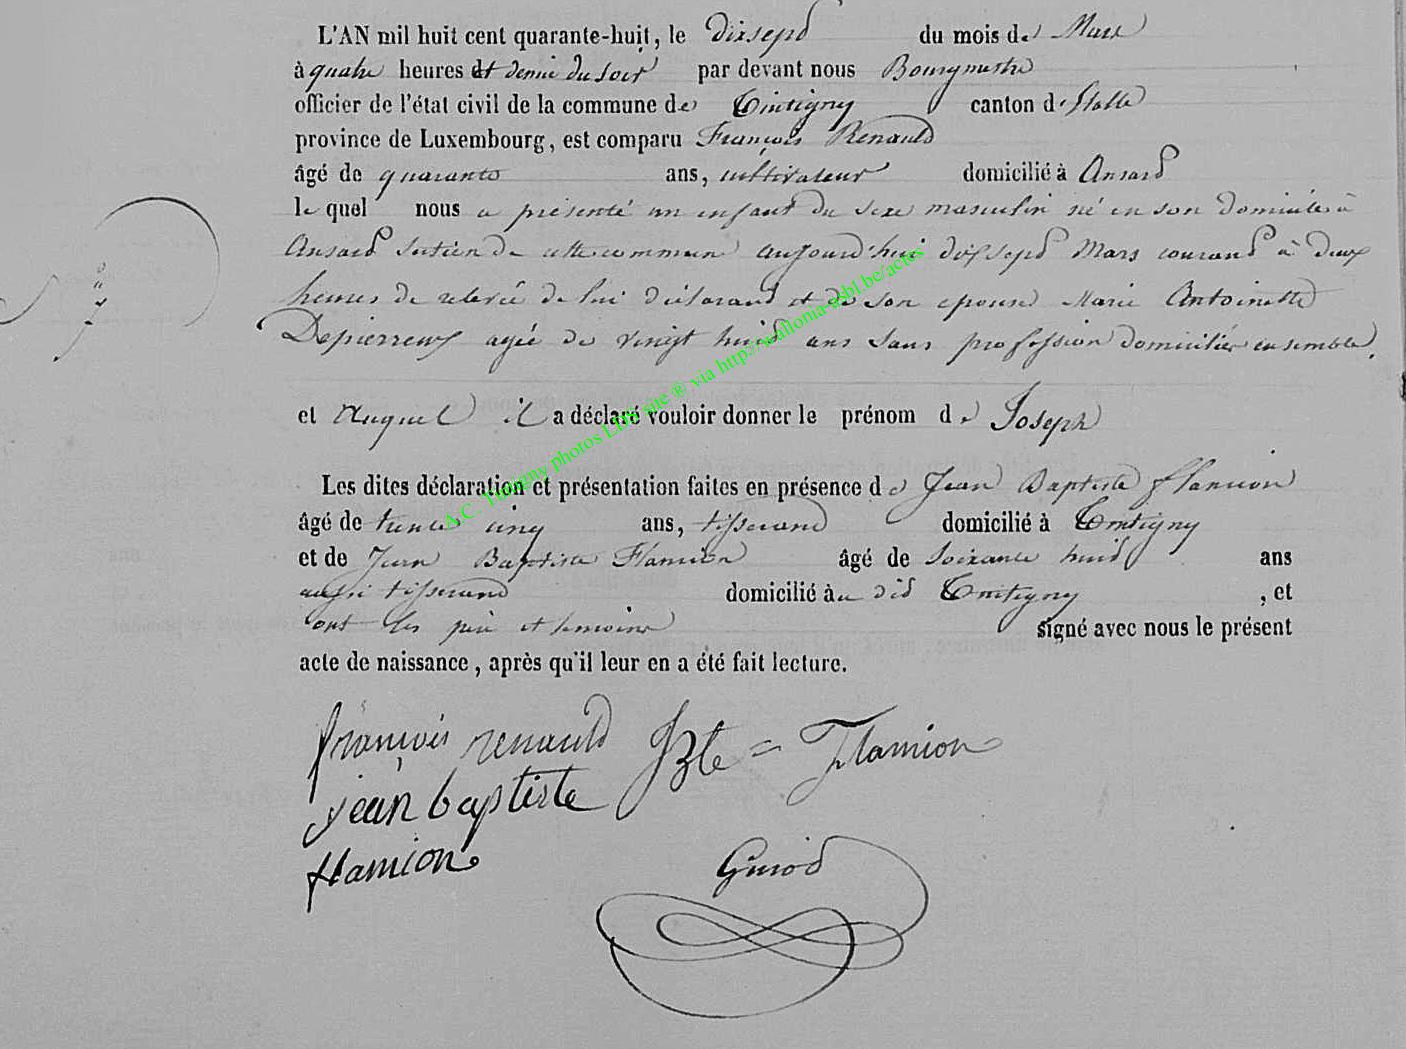 L'AN mil huit cent quarante-huit, le dixsept du mois de Mars
à quatre heures et demie du soir par devant nous Bourgmestre
officier de l'état civil de la commune de Tintigny canton d'Etalle
province de Luxembourg, est comparu François Renauld
âgé de quarante ans, cultivateur domicilié à Ansart
le quel nous a présenté un enfant du sexe masculin né en son domicile à
Ansart section de cette commune aujourd'hui dixsept Mars courant à deux
heures de relevée de lui déclarant et de son epouse Marie Antoinette
Depierreux agée de vingt huit ans sans profession domiciliés ensemble.
et auquel il a déclaré vouloir donner le prénom de Joseph
Les dites déclaration et présentation faites en présence de Jean Baptiste flamion
âgé de trente cinq ans, tisserand domicilié à Tintigny
et de Jean Baptiste Flamion âgé de soixante huit ans
aussi tisserand domicilié à au dit Tintigny, et
ont les père et temoins signé avec nous le présent
acte de naissance, après qu'il leur en a été fait lecture.
françois renauld JBte = Flamion
jean baptiste
flamion
Guiod
A.C. Tintigny photos LDS site ® via http://wallonia-asbl.be/actes